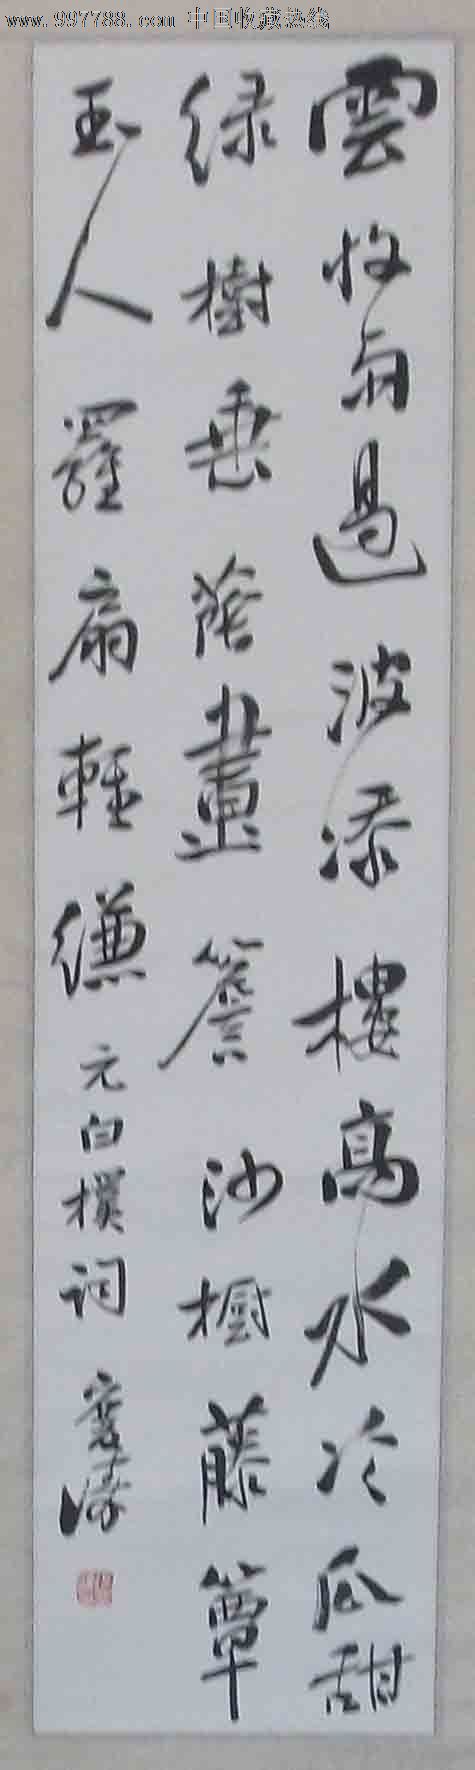 www.997788.com 中国收藏热线
雲收雨過波添樓高水冷瓜甜
绿樹垂蔭畫簷沙橱藤簟
玉人羅扇輕縑元白樸词